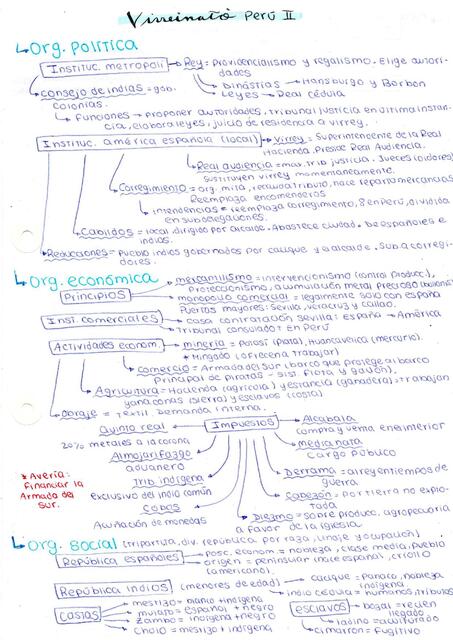 Virreinato Perú II
Org. política
Instituc. metrópoli
Rey = Providencialismo y regalismo. Elige autoridades
Dinastías → Hansburgo y Borbon
Leyes → Real cédula
Consejo de indias = gob. colonias.
Funciones → Proponer autoridades, Tribunal justicia en última instancia, elabora leyes, juicio de residencia a virrey.
Instituc. américa española (local)
Virrey = Superintencente de la Real Hacienda. Preside Real Audiencia.
Real audiencia = max. trib justicia. Jueces (oidores) sustituyen virrey momentaneamente.
Corregimiento = org. mita, recauda tributo, hace reparto mercancías
Reemplaza encomenderos
Intendencias = reemplaza corregimiento, 8 en Perú, dividida en subdelegaciones.
Cabildos = local dirigido por alcalde. Abastece ciudad. De españoles e indios.
Reducciones = Pueblo indios gobernados por cacique y alcalde. Sub. a corregidores.
Org. económica
Principios
mercantilismo = intervencionismo (control product), Proteccionismo, acumulación metal precioso
monopolio comercial = legalmente solo con España
Puertos mayores: Sevilla, Veracruz y Callao.
Inst. comerciales
casa contratación Sevilla: España → América
Tribunal consulado: En Perú
Actividades econom.
minería = Potosí (plata), Huancavelica (mercurio).
* Mingado (ofrecen a trabajar)
comercio = Armada del Sur (barco que protege al barco Principal de piratas - sist. flota y galeón).
Agricultura = Hacienda (agrícola) y estancia (ganadera) → Trabajan yanaconas (sierra) y esclavos (costa)
Obraje = Textil. Demanda interna.
Impuestos
Quinto real
20% metales a la corona
Almojarifazgo
aduanero
Trib. indígena
exclusivo del indio común
Cobos
Acuñación de monedas
* Avería: Financiar la Armada del sur.
Alcabala
compra y venta en el interior
medianata
cargo Público
Derrama = al rey en tiempos de guerra.
Cabezón = Por tierra no explotada
Diezmo = sobre produc. agropecuaria a favor de la iglesia
Org. social (tripartita, div. república por raza, linaje y ocupación)
República españoles
Posc. econom = nobleza, clase media, pueblo
origen = peninsular (nace españa), criollo (americano).
República indios (menores de edad)
cacique = panaca, nobleza indígena
indio célula = humanos, tributos
Castas
mestizo = blanco + indígena
mulato = español + negro
Zambo = indígena + negro
Cholo = mestizo + indígena
esclavos
bozal = recién llegado
ladino = aculturado
cimarrón = Fugitivo